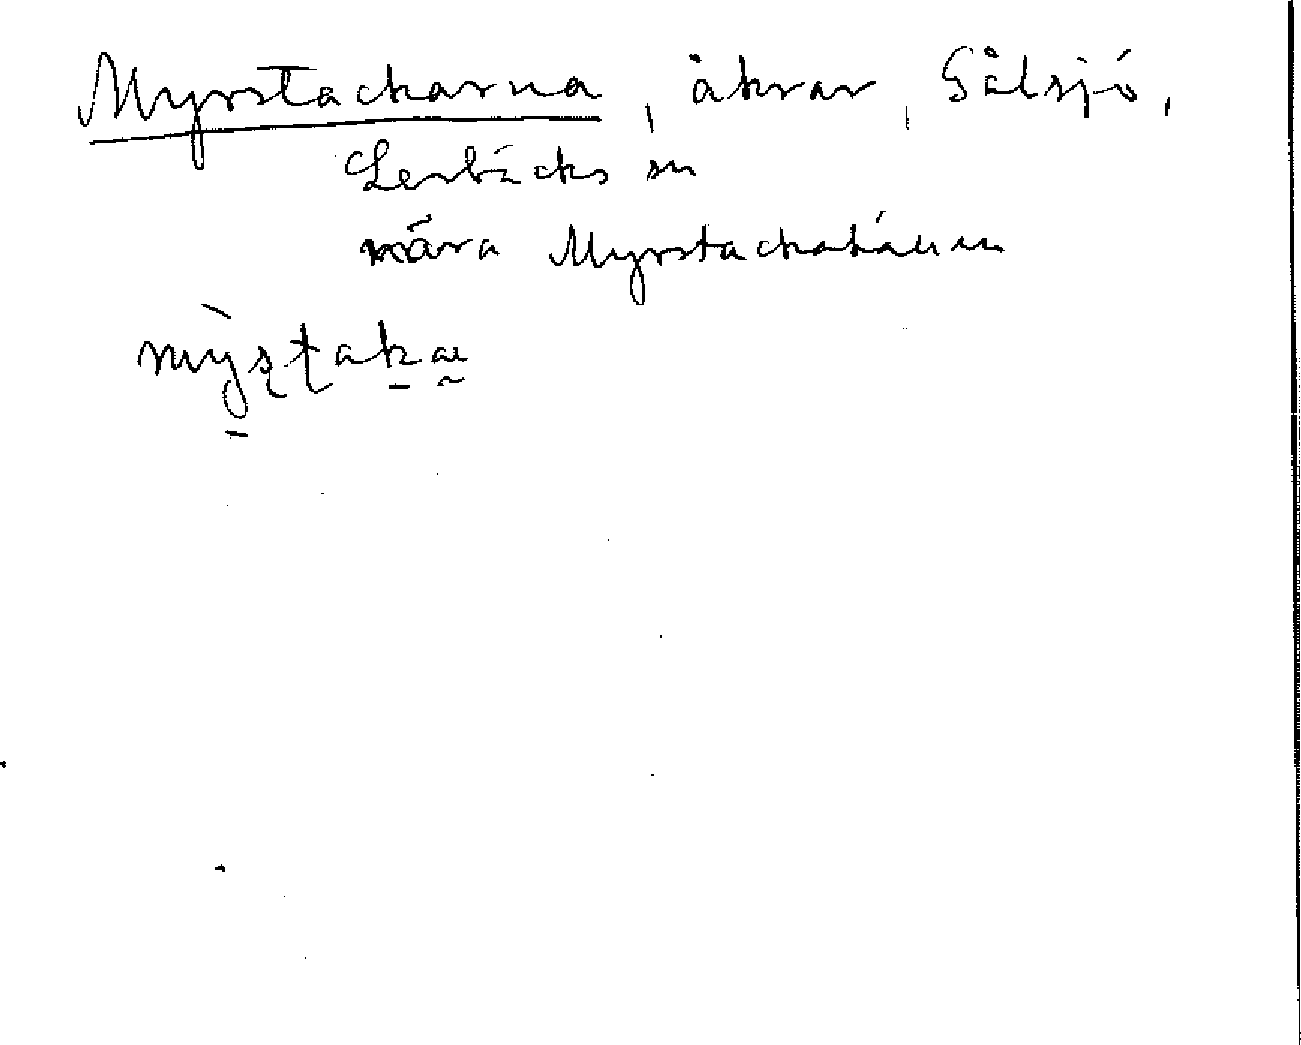 Myrstackarna, åkrar, Gålsjö,
Lerbäcks sn
nära Myrstackabäcken